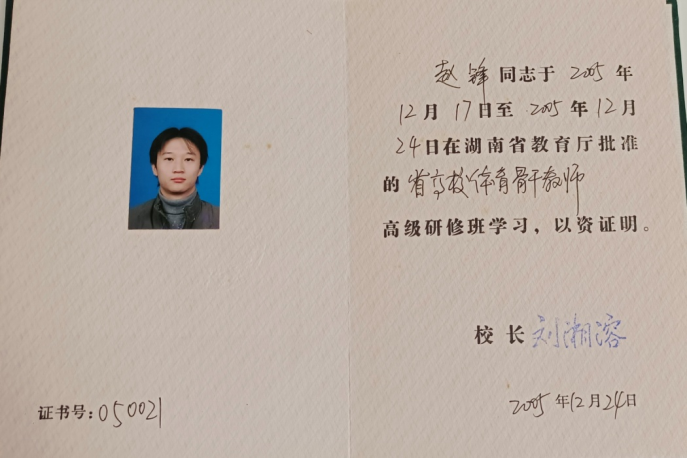 证书号：050021
赵锋同志于2005年
12月17日至2005年12月
24日在湖南省教育厅批准
的省高校体育骨干教师
高级研修班学习，以资证明。
校长刘湘溶
2005年12月24日